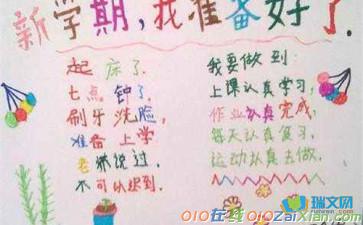 新学期,我准备好了.
起床了.
七点钟了.
刷牙洗脸,
准备上学
老师说过,
不可以迟到.
我要做到:
上课认真学习,
作业认真完成,
每天认真复习,
运动认真去做.
瑞文网
010在线 010zaixian.com